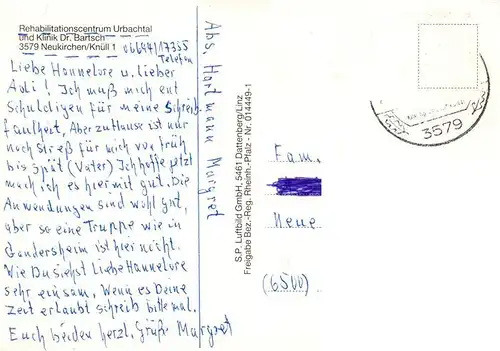 Rehabilitationscentrum Urbachtal
und Klinik Dr. Bartsch
3579 Neukirchen/Knüll 1 06694/17335
Telefon
Liebe Hannelore u. lieber
Adi! Ich muß mich ent
Schuldigen für meine Schreib
faulheit, Aber zuhause ist nur
noch streß für mich von früh
bis spät (Vater) Ich hoffe jetzt
mach ich es hiermit gut. Die
Anwendungen sind wohl gut,
aber so eine Truppe wie in
Gandersheim ist hier nicht.
Wie Du siehst Liebe Hannelore
sehr einsam, Wenn es Deine
Zeit erlaubt schreib bitte mal.
Euch beiden herzl. Grüße Margret
Abs. Hartmann Margret
S.P. Luftbild GmbH, 5461 Dattenberg/Linz
Freigabe Bez.-Reg. Rheinh.-Pfalz - Nr. 014449-1
3579
Fam.
Neue
(6500)